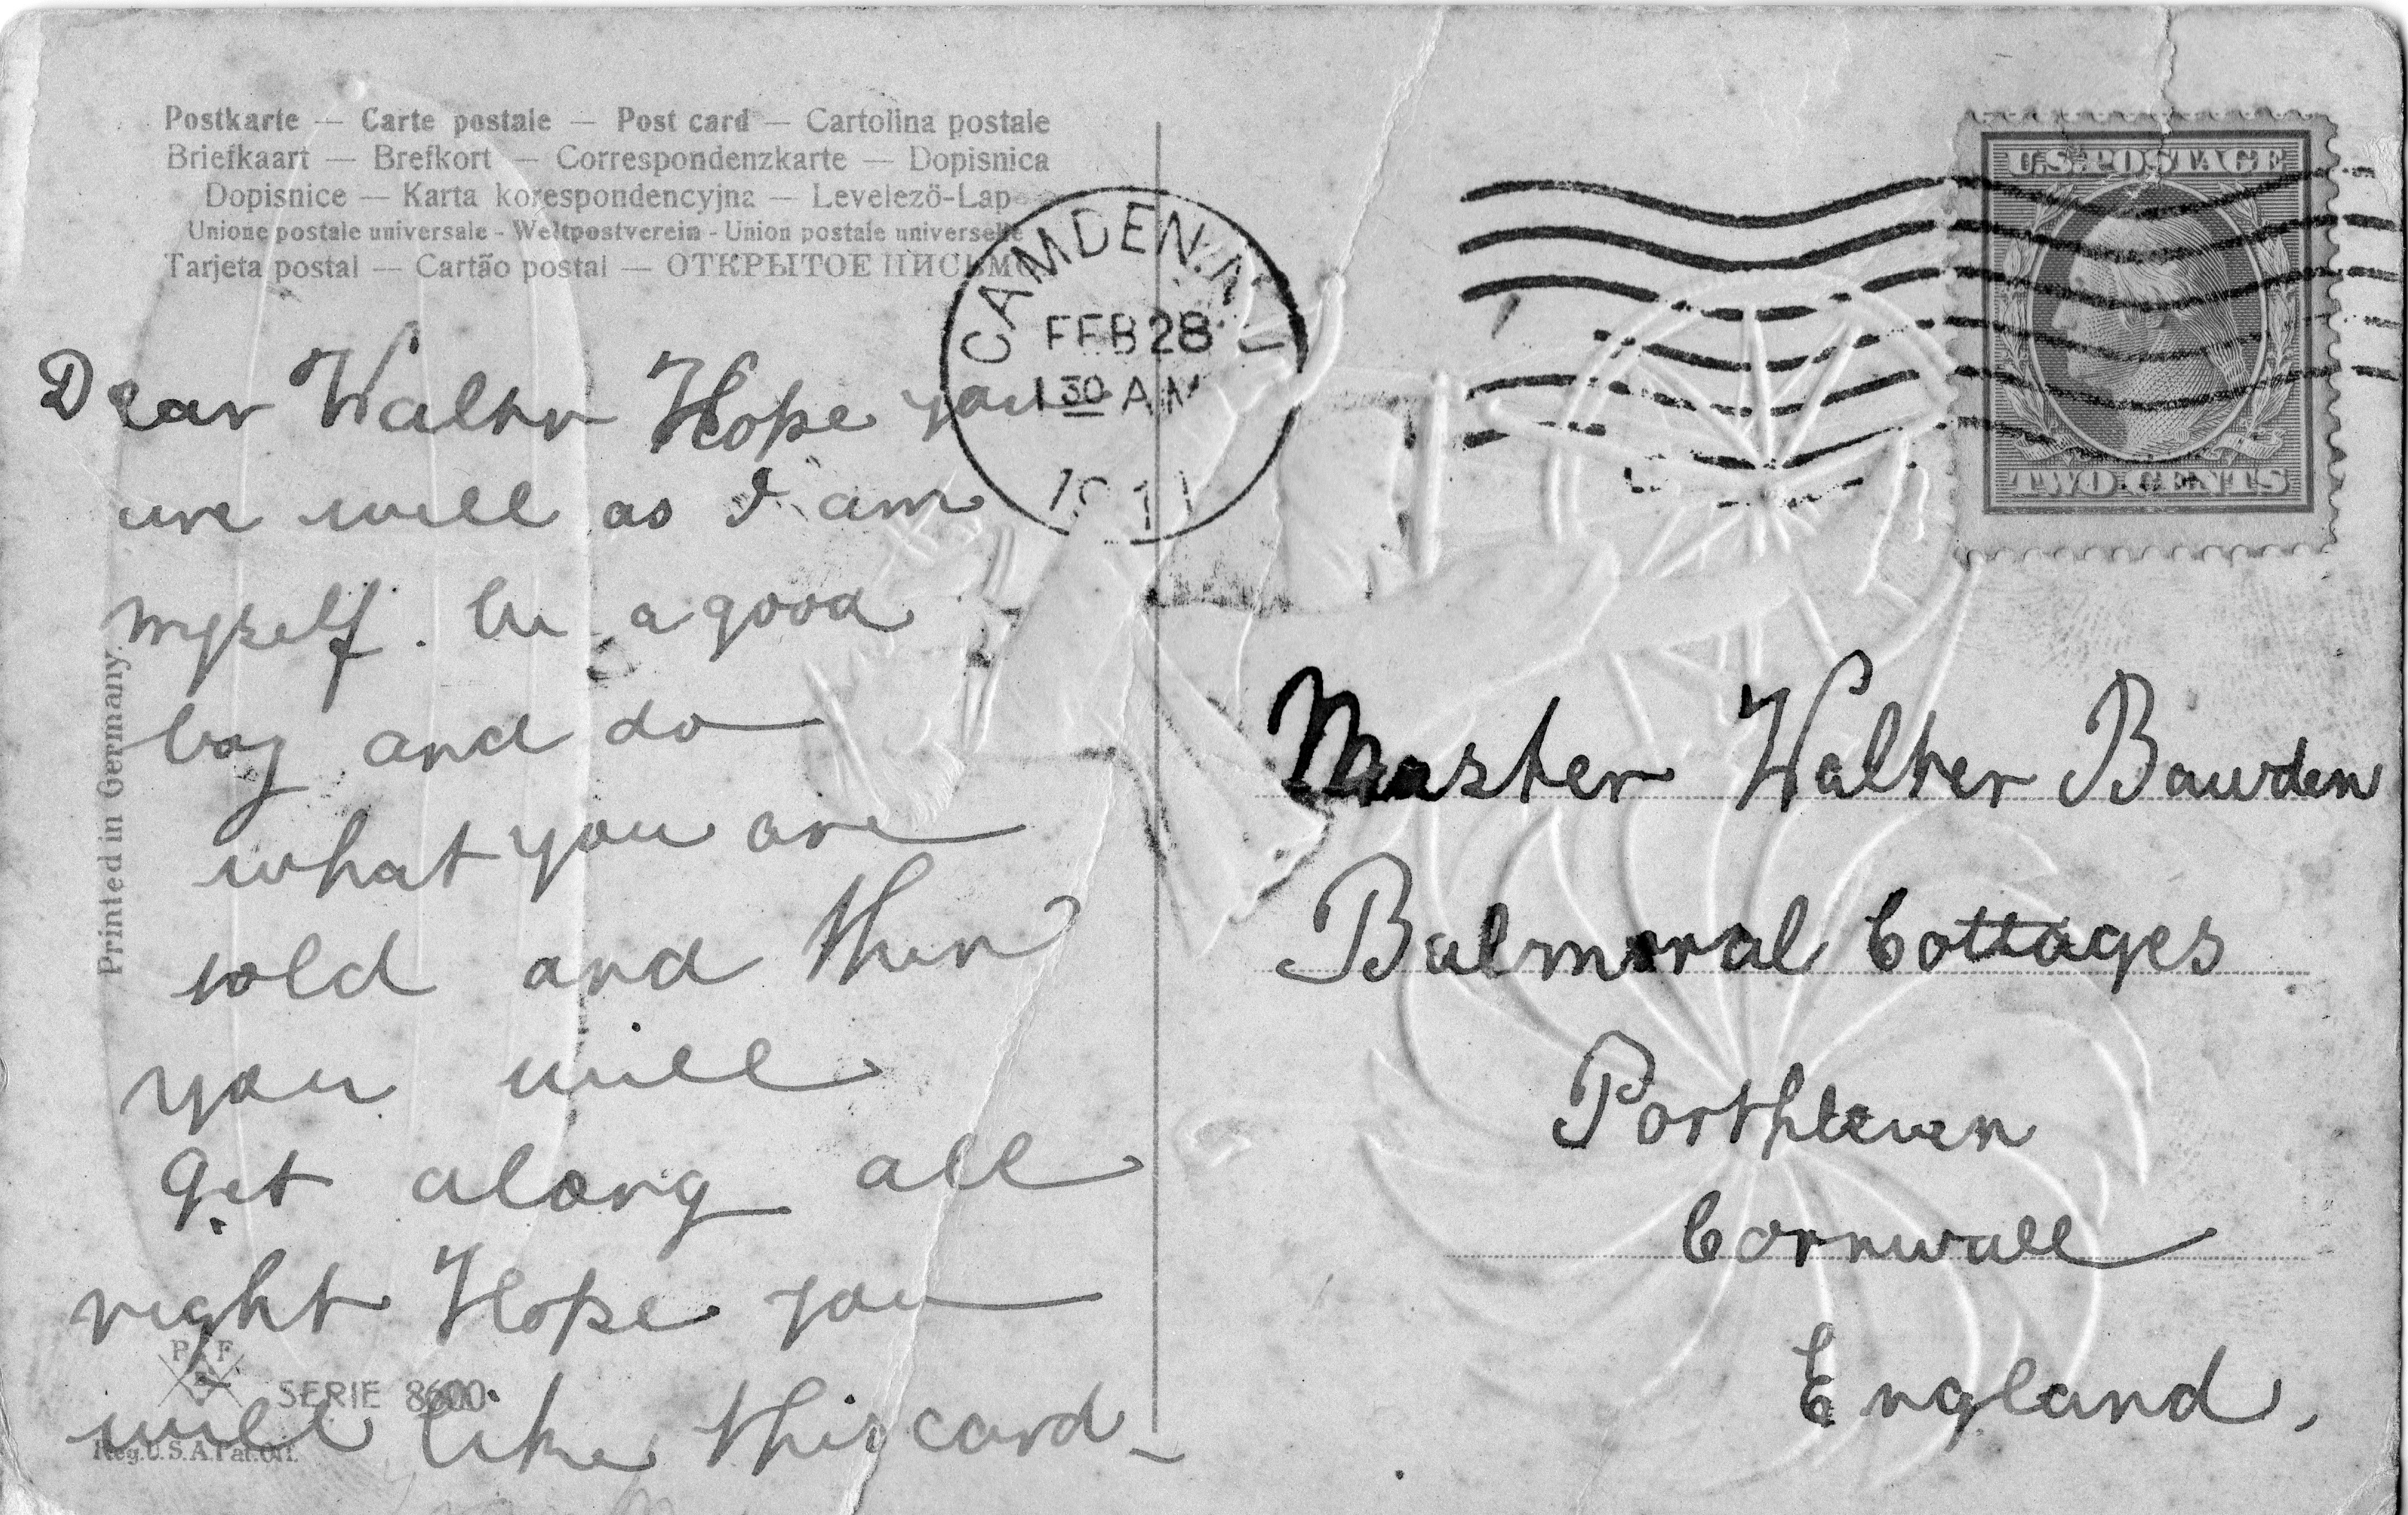 Postkarte — Carte postale — Post card — Cartolina postale
Briefkaart — Brefkort — Correspondenzkarte — Dopisnica
Dopisnice — Karta korespondencyjna — Levelezö-Lap
Unione postale universale - Weltpostverein - Union postale universelle
Tarjeta postal — Cartão postal — ОТКРЫТОЕ ПИСЬМО
CAMDEN, N.J.
FEB 28
1 30 AM
1911
U.S. POSTAGE
TWO CENTS
Dear Walter Hope you
are well as I am
myself. be a good
boy and do
what you are
told and then
you will
get along all
right Hope you
will like this card
Printed in Germany.
P F B
SERIE 8600
Reg. U.S.A. Pat. Off.
Master Walter Bawden
Balmoral Cottages
Porthleven
Cornwall
England.